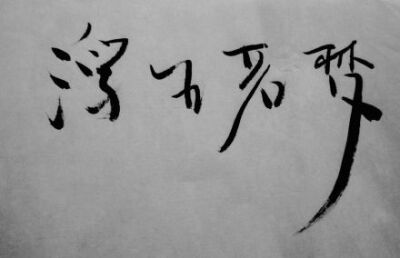 浮生若梦